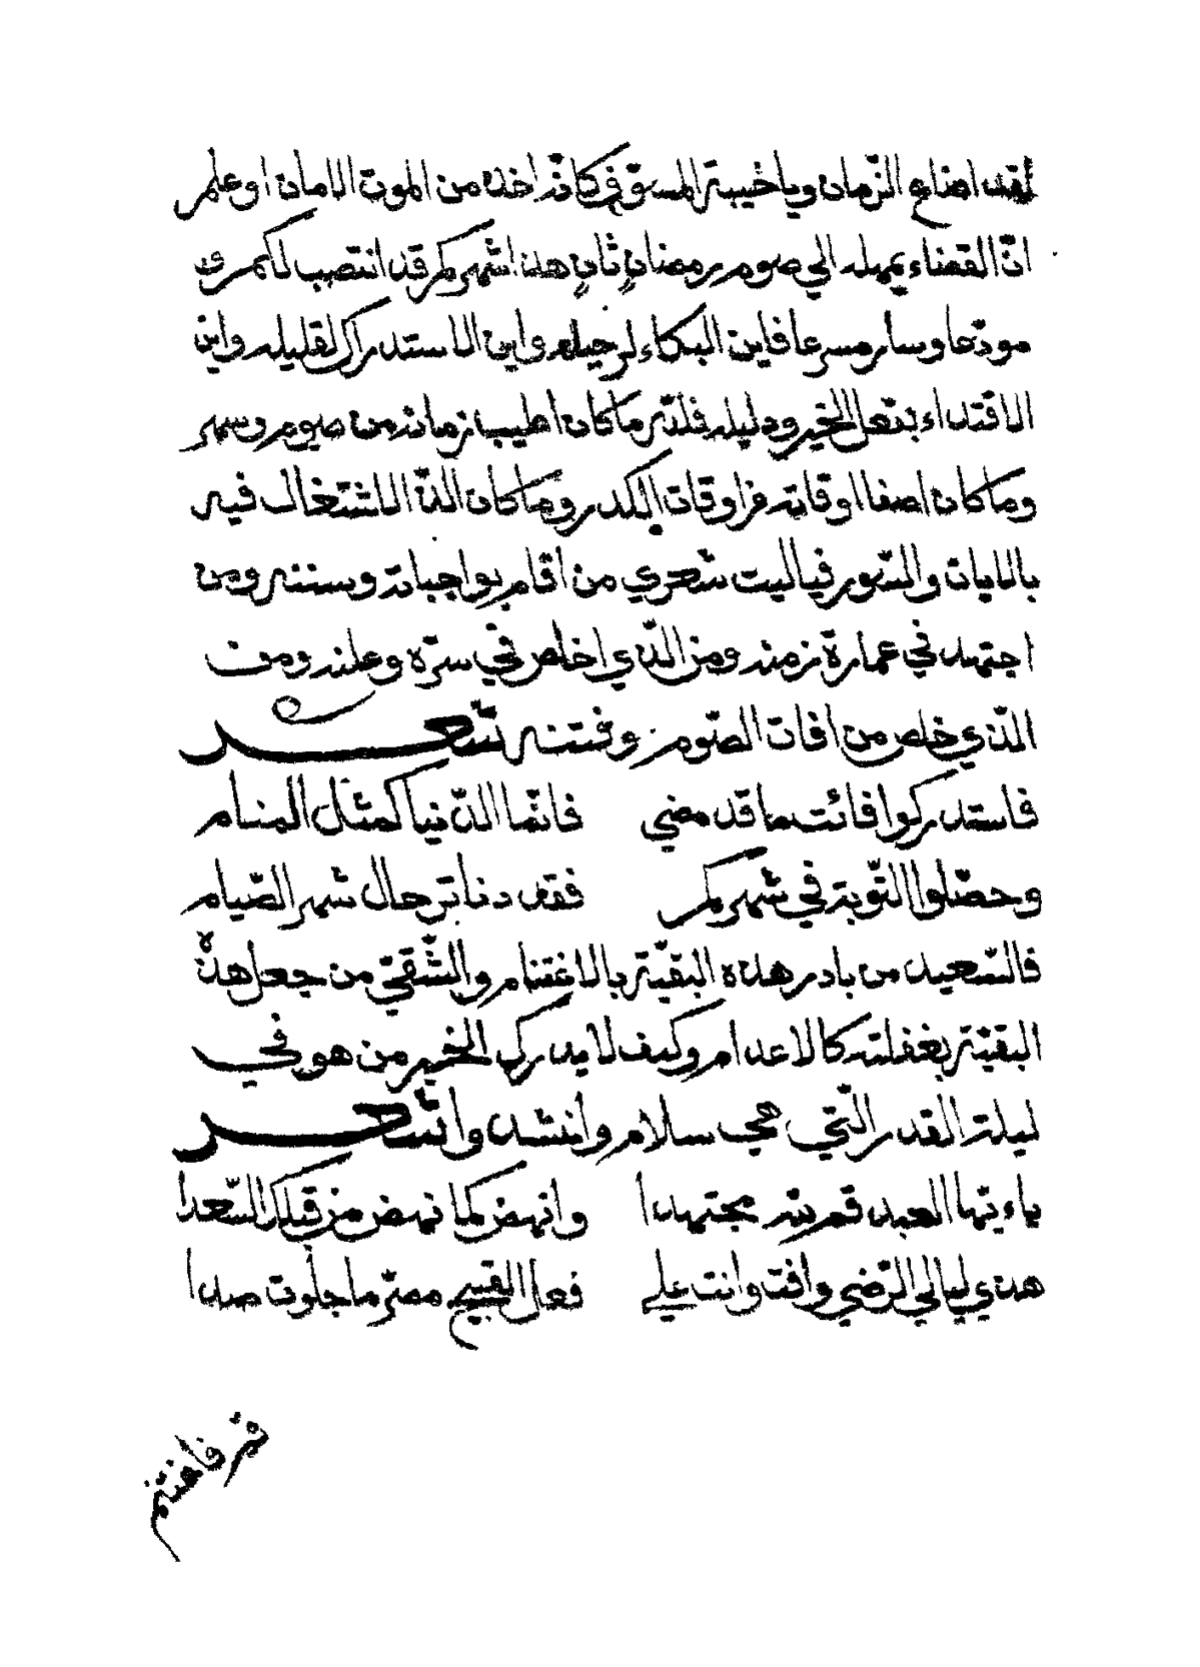 لقد اضاع الزمان وياخيبة المسوّف كانّه اخذ من الموت الامان او علم
انّ القضاء يمهله الي صوم رمضانٍ ثانٍ هذا شهركم قد انتصب لكم
مودّعا وسار مسرعا فاين البكاء لرحيله واين الاستدراك لقليله واين
الاقتداء بفعل الخير ودليله فللّه ما كان اطيب زمانه من صوم وسهر
وما كان اصفا اوقاته من اوقات الكدر وما كان الذّ الاشتغال فيه
بالايات والسّور فياليت شعري من اقام بواجباته وسننه ومن
اجتهد في عمارة زمنه ومن الذي اخلص في سرّه وعلنه ومن
الذي خلص من افات الصّوم وفتنه شعر
فاستدركوا فائت ما قد مضي فانّما الدّنيا كمثل المنام
وحصّلوا التّوبة في شهركم فقد دنا ترحال شهر الصّيام
فالسّعيد من بادر هذه البقيّة بالاغتنام والشّقيّ من جعل هذه
البقيّة بغفلته كالاعدام وكيف لا يدرك الخير من هو في
ليلة القدر الّتي هي سلام وانشد واشعر
ياءيّها العبد قم للّه مجتهدا وانهض كما نهض من قبلك السّعدا
هذي ليالي الرّضي وافت وانت علي فعل القبيح مصرّ ما جلوت صدا
قم فاغتنم